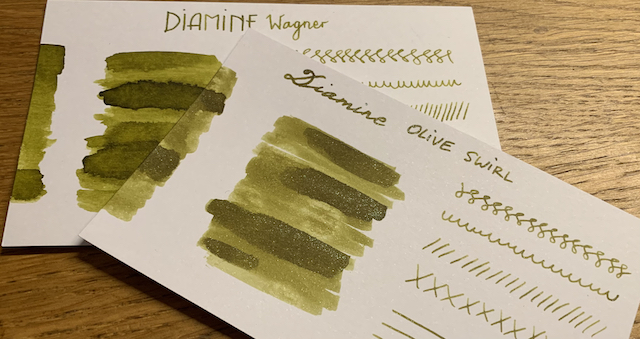 DIAMINE Wagner
Diamine OLIVE SWIRL
XXXXXXXX